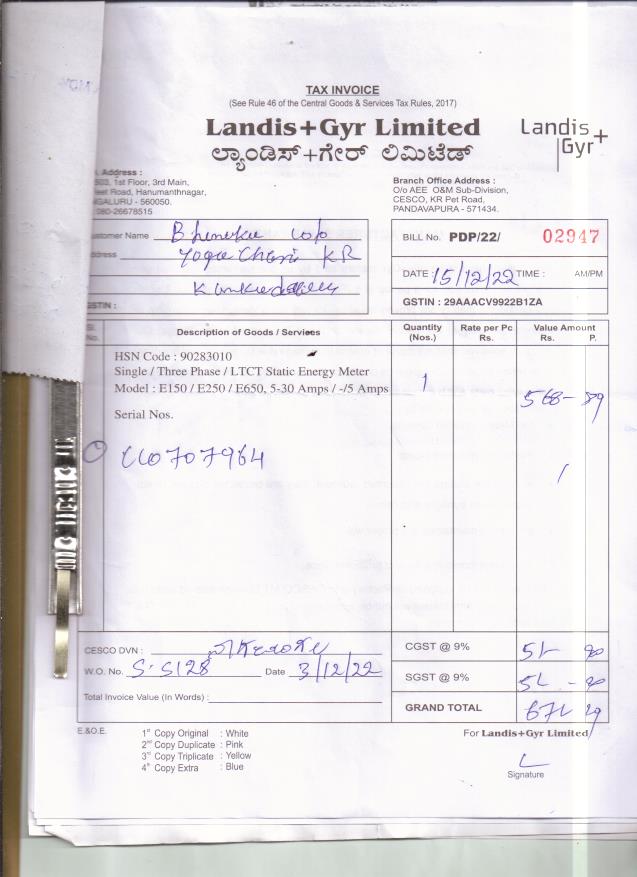 TAX INVOICE
(See Rule 46 of the Central Goods & Services Tax Rules, 2017)
Landis+Gyr Limited
ಲ್ಯಾಂಡಿಸ್+ಗೇರ್ ಲಿಮಿಟೆಡ್
Landis+
Gyr
Address :
1st Floor, 3rd Main,
Road, Hanumanthnagar,
- 560050.
080-26678515
Branch Office Address :
O/o AEE O&M Sub-Division,
CESCO, KR Pet Road,
PANDAVAPURA - 571434.
Name
BILL No. PDP/22/ 02947
DATE : 15/12/22 TIME : AM/PM
GSTIN : 29AAACV9922B1ZA
GSTIN :
No. Description of Goods / Services Quantity (Nos.) Rate per Pc Rs. Value Amount Rs. P.
HSN Code : 90283010
Single / Three Phase / LTCT Static Energy Meter
Model : E150 / E250 / E650, 5-30 Amps / -/5 Amps 1
568 - 89
Serial Nos.
707964
CESCO DVN :
CGST @ 9% 51
W.O. No. S-5128 Date 3/12/22
SGST @ 9% 51
Total Invoice Value (In Words) :
GRAND TOTAL 671 29
E.&O.E.
1st Copy Original : White
2nd Copy Duplicate : Pink
3rd Copy Triplicate : Yellow
4th Copy Extra : Blue
For Landis+Gyr Limited
Signature